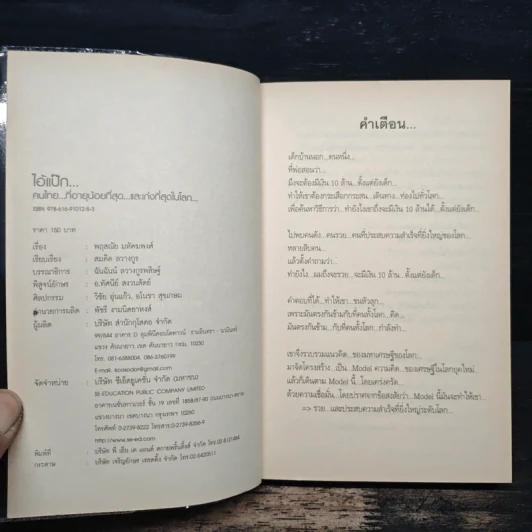 ไอ้แป๊ก...
คนไทย...ที่อายุน้อยที่สุด...และเก่งที่สุดในโลก...
ISBN 978-616-91012-5-3
ราคา 150 บาท
เรื่อง • พฤสณัย มหัคฆพงศ์
เรียบเรียง • สมคิด ลวางกูร
บรรณาธิการ • ฉันฉันน์ ลวางกูรพสิษฐ์
พิสูจน์อักษร • อ.ทัศนีย์ สงวนสัตย์
ศิลปกรรม • วิชัย อุ่นแก้ว, อโนชา สุขเกษม
อำนวยการผลิต • พัชรี งามนิตยาหงส์
ผู้ผลิต • บริษัท สำนักกุโสดอ จำกัด
แขวง คันนายาว เขต คันนายาว กทม. 10230
โทร. 081-6388004, 086-3760199
จัดจำหน่าย • บริษัท ซีเอ็ดยูเคชั่น จำกัด (มหาชน)
SE-EDUCATION PUBLIC COMPANY LIMITED
แขวงบางนา เขตบางนา กรุงเทพฯ 10260
โทรศัพท์ 0-2739-8222 โทรสาร:0-2739-8356-9
http://www.se-ed.com
พิมพ์ที่ •
กระดาษ • บริษัท เจริญอักษร
คำเตือน...
เด็กบ้านนอก...คนหนึ่ง...
ที่พ่อสอนว่า...
มึงจะต้องมีเงิน 10 ล้าน...ตั้งแต่ยังเด็ก...
ทำให้เขาต้องกระเสือกกระสน...เดินทาง...ท่องไปทั่วโลก...
เพื่อค้นหาวิธีการว่า...ทำยังไงเขาถึงจะมีเงิน 10 ล้านได้...ตั้งแต่ยังเด็ก...
ไปพบคนดัง...คนรวย...คนที่ประสบความสำเร็จที่ยิ่งใหญ่ของโลก...
หลายสิบคน...
แล้วตั้งคำถามว่า...
ทำยังไง...ผมถึงจะรวย...จะมีเงิน 10 ล้าน...ตั้งแต่ยังเด็ก...
คำตอบที่ได้...ทำให้เขา...ชนหัวลุก...
เพราะมันตรงกันข้าม...กับที่คนทั้งโลก...คิด...
มันตรงกันข้าม...กับที่คนทั้งโลก...กำลังทำ...
เขาจึงรวบรวมแนวคิด...ของมหาเศรษฐีของโลก...
มาจัดโครงสร้าง...เป็น Model ความคิด...ของเศรษฐีในโลกยุคใหม่...
แล้วก็เดินตาม Model นี้...โดยเคร่งครัด...
ด้วยความเชื่อมั่น...โดยปราศจากข้อสงสัยว่า...Model นี้มันจะทำให้เขา...
=> รวย...และประสบความสำเร็จที่ยิ่งใหญ่ระดับโลก...